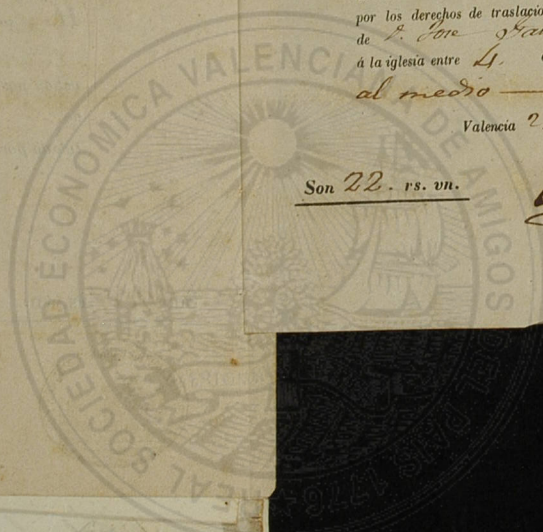 por los derechos de traslacio
de D. Jose
á la iglesia entre 4.
al medio —
Valencia 2
Son 22. rs. vn.
REAL SOCIEDAD ECONOMICA VALENCIANA DE AMIGOS DEL PAIS 1776